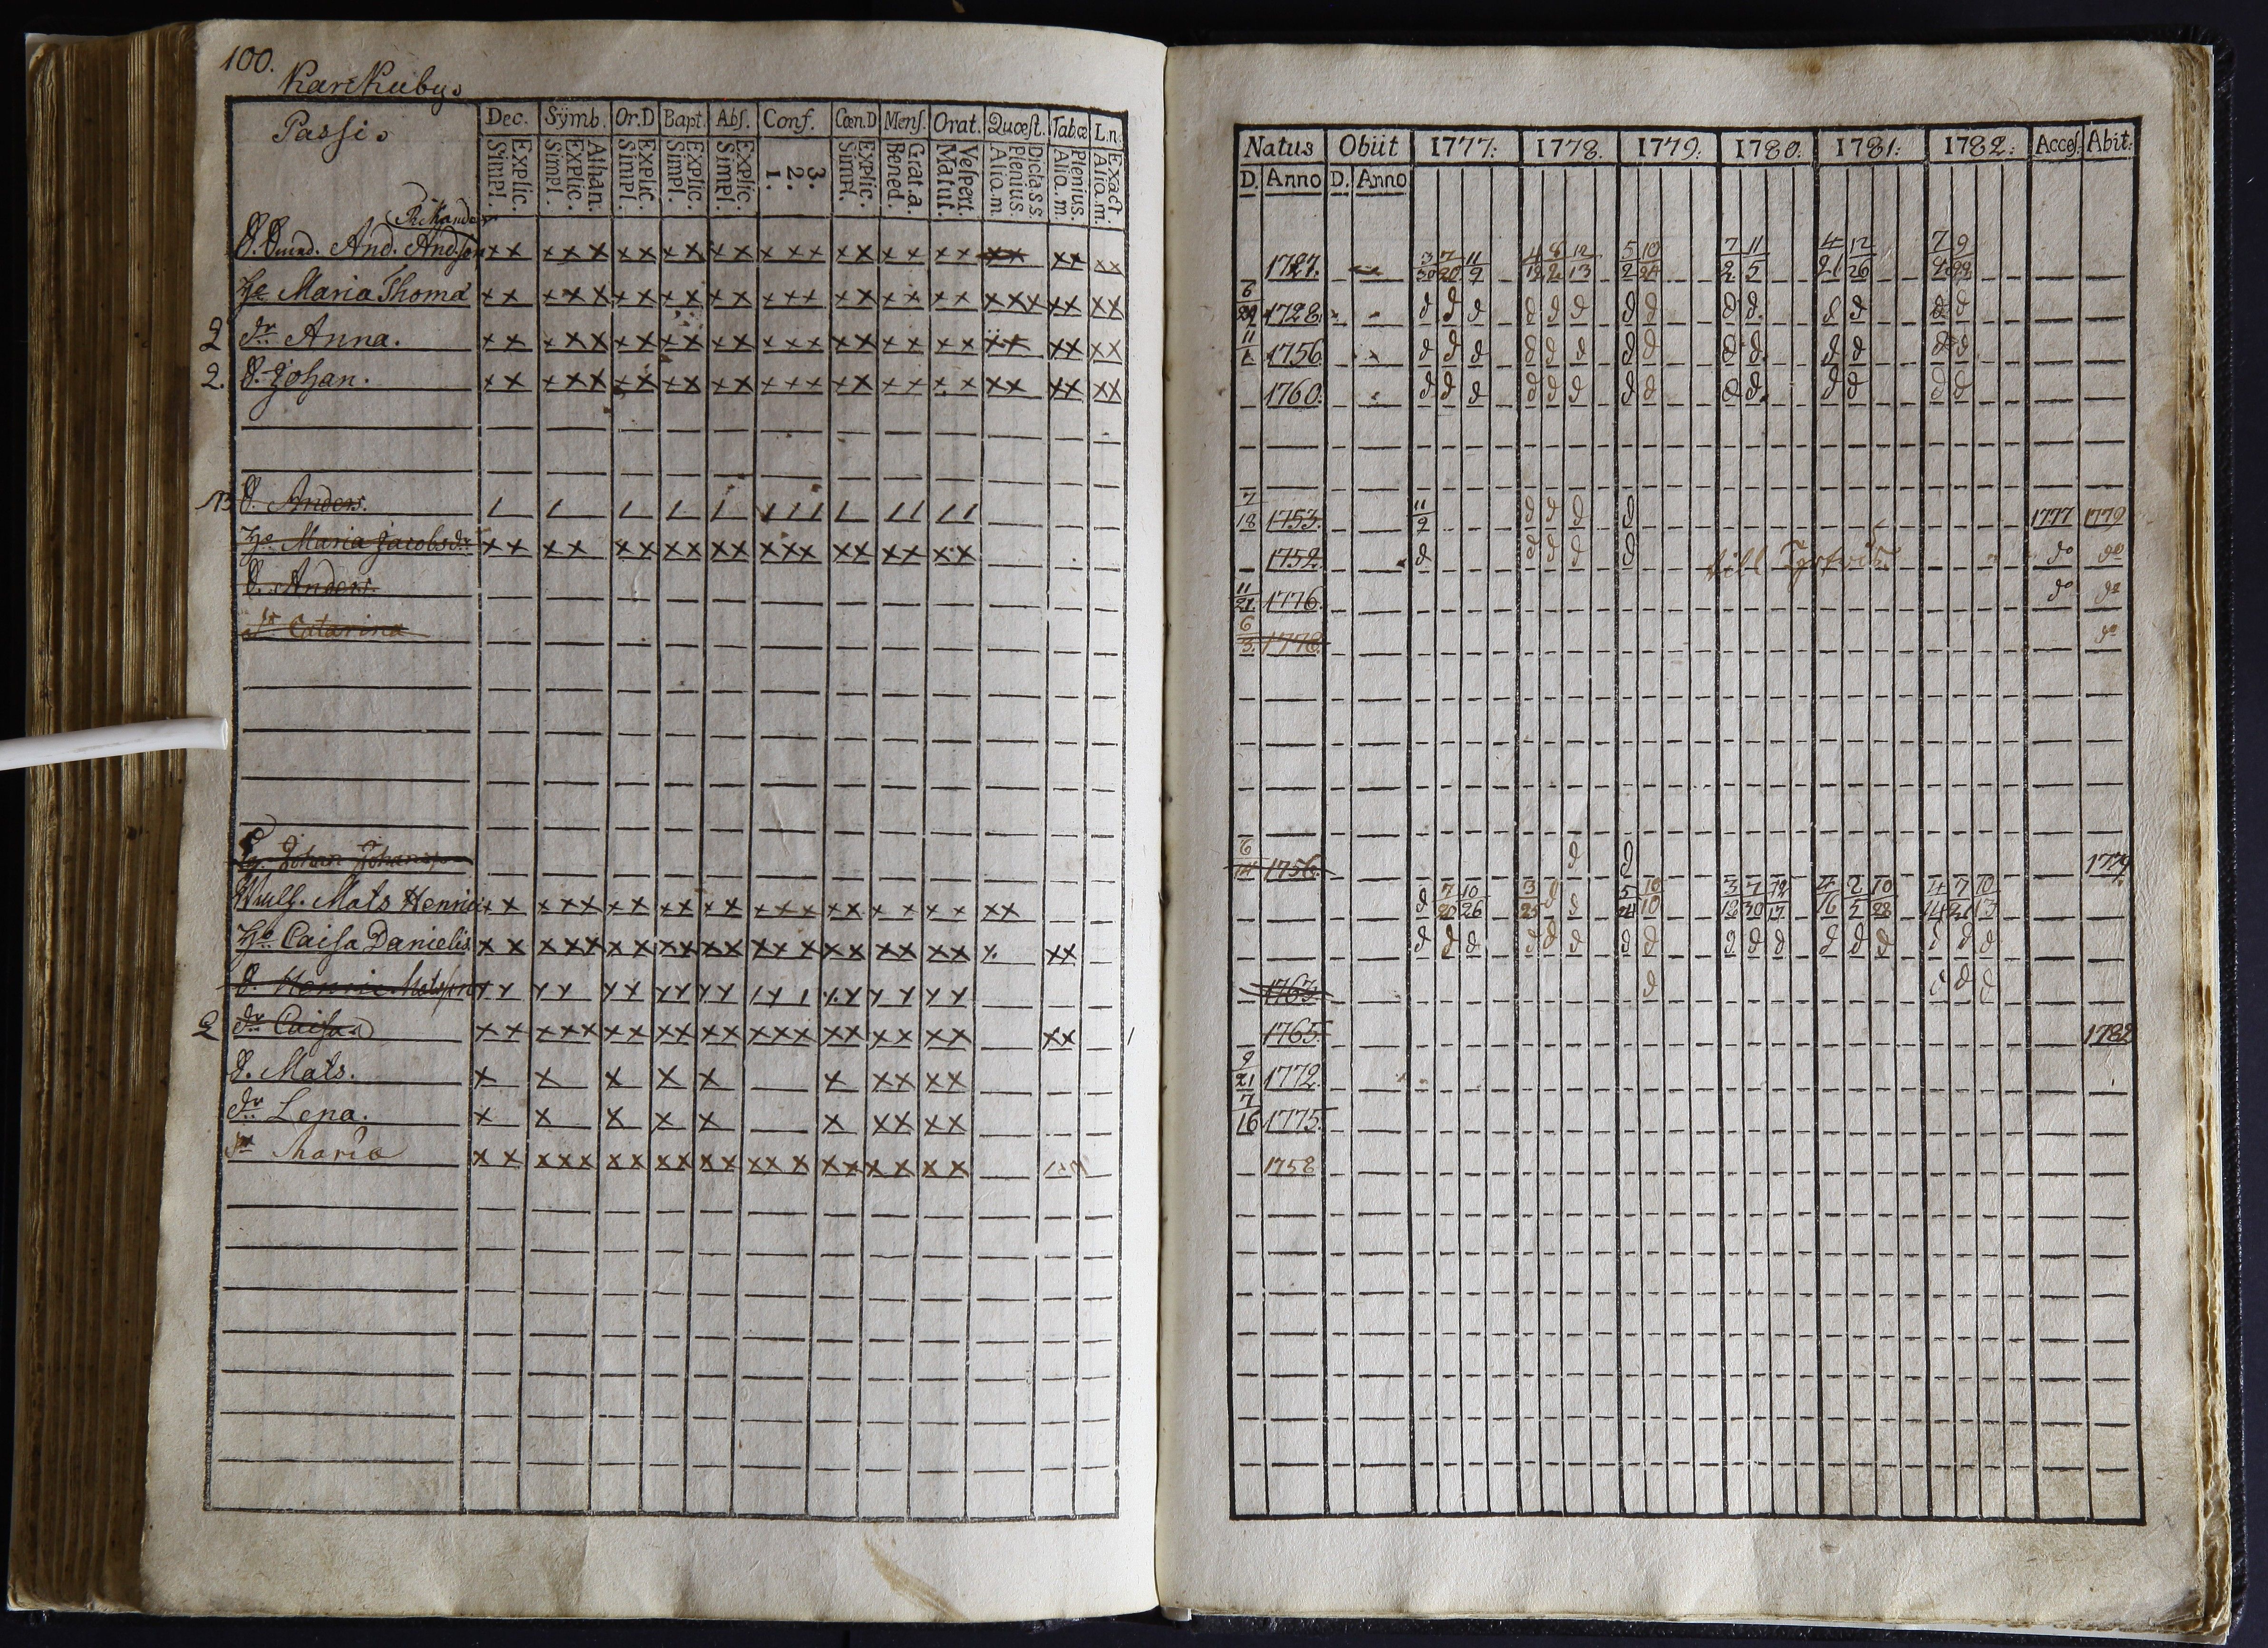 100.
Passi.
Dec. Sÿmb. Or.D Bapt. Abſ. Conf. Cœn.D Menſ. Orat. Quœſt. Tab.œ L.n.
Explic. Simpl. Athan. Explic. Simpl. Explic. Simpl. Explic. Simpl. Explic. Simpl. 3. 2. 1. Explic. Simpl. Grat.a. Bened. Veſpert. Matut. Dicta.s.s. Plenius. Aliq.m. Plenius. Aliq.m. Exact. Aliq.m.
And. Andſon
Maria Thomæ
2 dr. Anna.
2. S. Johan.
NB S. Anders.
Maria Jacobsdr
S. Anders.
dr Catarina
Johan Johansson
Mats Henrici
Caisa Danielis
S. Henric Matsson
2 dr. Caisa
S. Mats.
dr. Lena.
dr Maria
Natus Obiit 1777: 1778. 1779: 1780: 1781: 1782: Acceſ: Abit:
D. Anno D. Anno
1727. 3/30 7/20 11/9 4/12 8/2 12/13 5/2 10/24 7/2 11/5 4/21 12/26
6/29 1728. d d d d d d d d d d d d d d
11/1 1756 d d d d d d d d d d d d d d
1760. d d d d d d d d d d d d d d
7/18 1753. 11/9 d d d d 1777 1779
1752. d d d d d till do do
11/21 1776. do do
6/3 1778. do
6 1756. d d 1779
d 7/20 10/26 3/25 d d 5/24 10/10 3/12 7/30 12/17 4/16 2/5 10/28 4/14 7/21 10/13
d d d d d d d d d d d d d d d d d
1763. d d d d
1765. 1782
9/21 1772.
7/16 1775.
1758